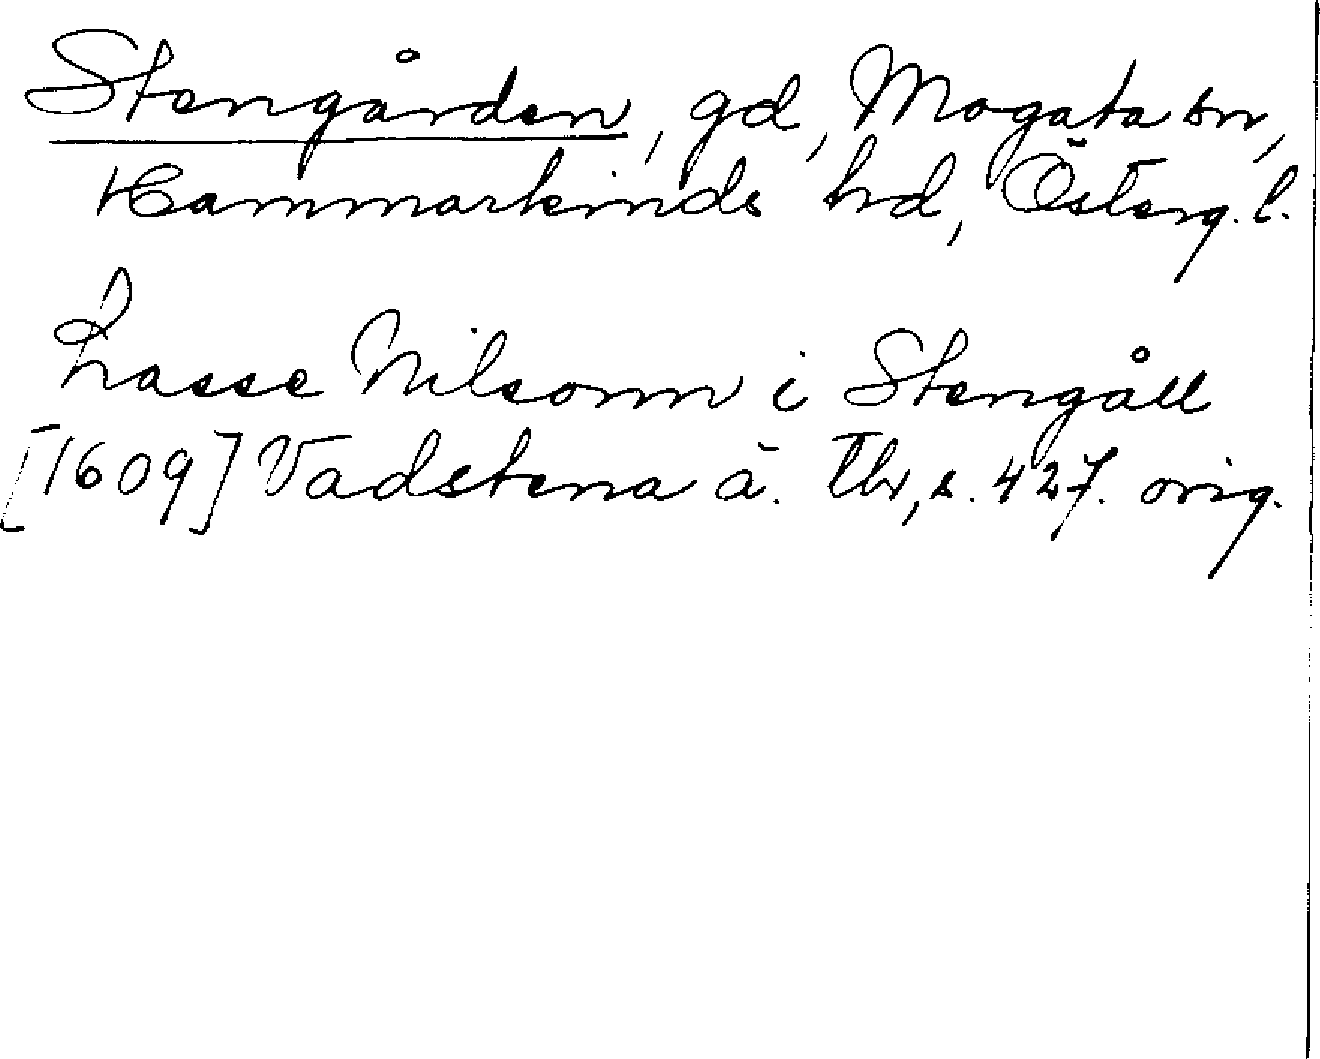 Stengården, gd, Mogata sn,
Hammarkinds hd, Österg. l.
Lasse Nilsonn i Stengåll
[1609] Vadstena ä. Tb, s. 427. orig.